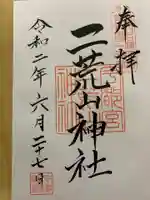 奉拝
二荒山神社
令和二年六月二十七日